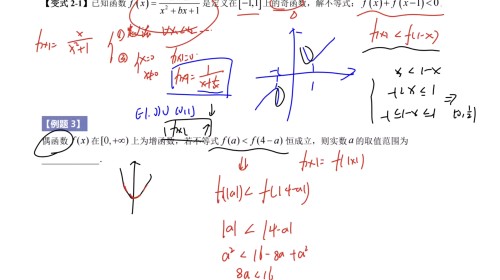 【变式 2-1】已知函数 f(x)= x²+bx+1 是定义在[-1,1]上的奇函数，解不等式：f(x)+f(x-1)<0.
f(x)= x/(x²+1)
①
② f(x)=0
x≠0
f(x)=0
f(x)= 1/(x+1/x)
-1
1
f(x)<f(1-x)
x<1-x
-1≤x≤1
-1≤1-x≤1
⇒[0,1/2)
(-1,0)∪(0,1) ↓
f(x) ↑
【例题 3】
偶函数 f(x) 在[0,+∞)上为增函数，若不等式 f(a)<f(4-a) 恒成立，则实数 a 的取值范围为
⇓
f(x)=f(|x|)
f(|a|)<f(|4-a|)
|a|<|4-a|
a²<16-8a+a²
8a<16